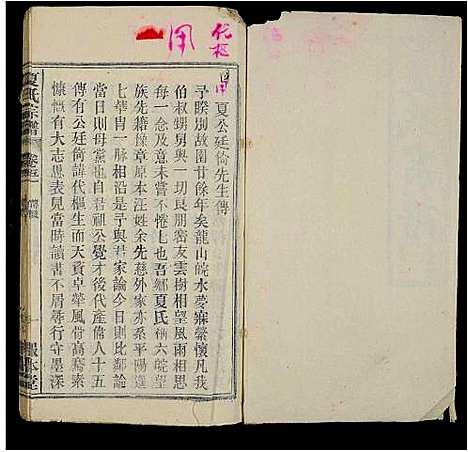 代枢
用
一
夏公廷倚先生傳
予睽別故園廿餘年矣龍山皖水夢寐縈懷凡我
伯叔甥舅與一切良朋密友雲樹相望風雨相思
每一念及未嘗不惓七也吾鄉夏氏稱六皖望
族先籍豫章原本汪姓余先慈外家亦系平陽遷
七華胄一脉相沿是予與君家論今日則比鄰論
當日則母黨也自君祖公覺才後代產偹八十五
傳有公廷倚諱代樞生而天資卓犖風骨高騫素
慷慨有大志愚表見當時讀書不屑尋行守墨深
夏氏宗譜
卷五
傳
報本堂